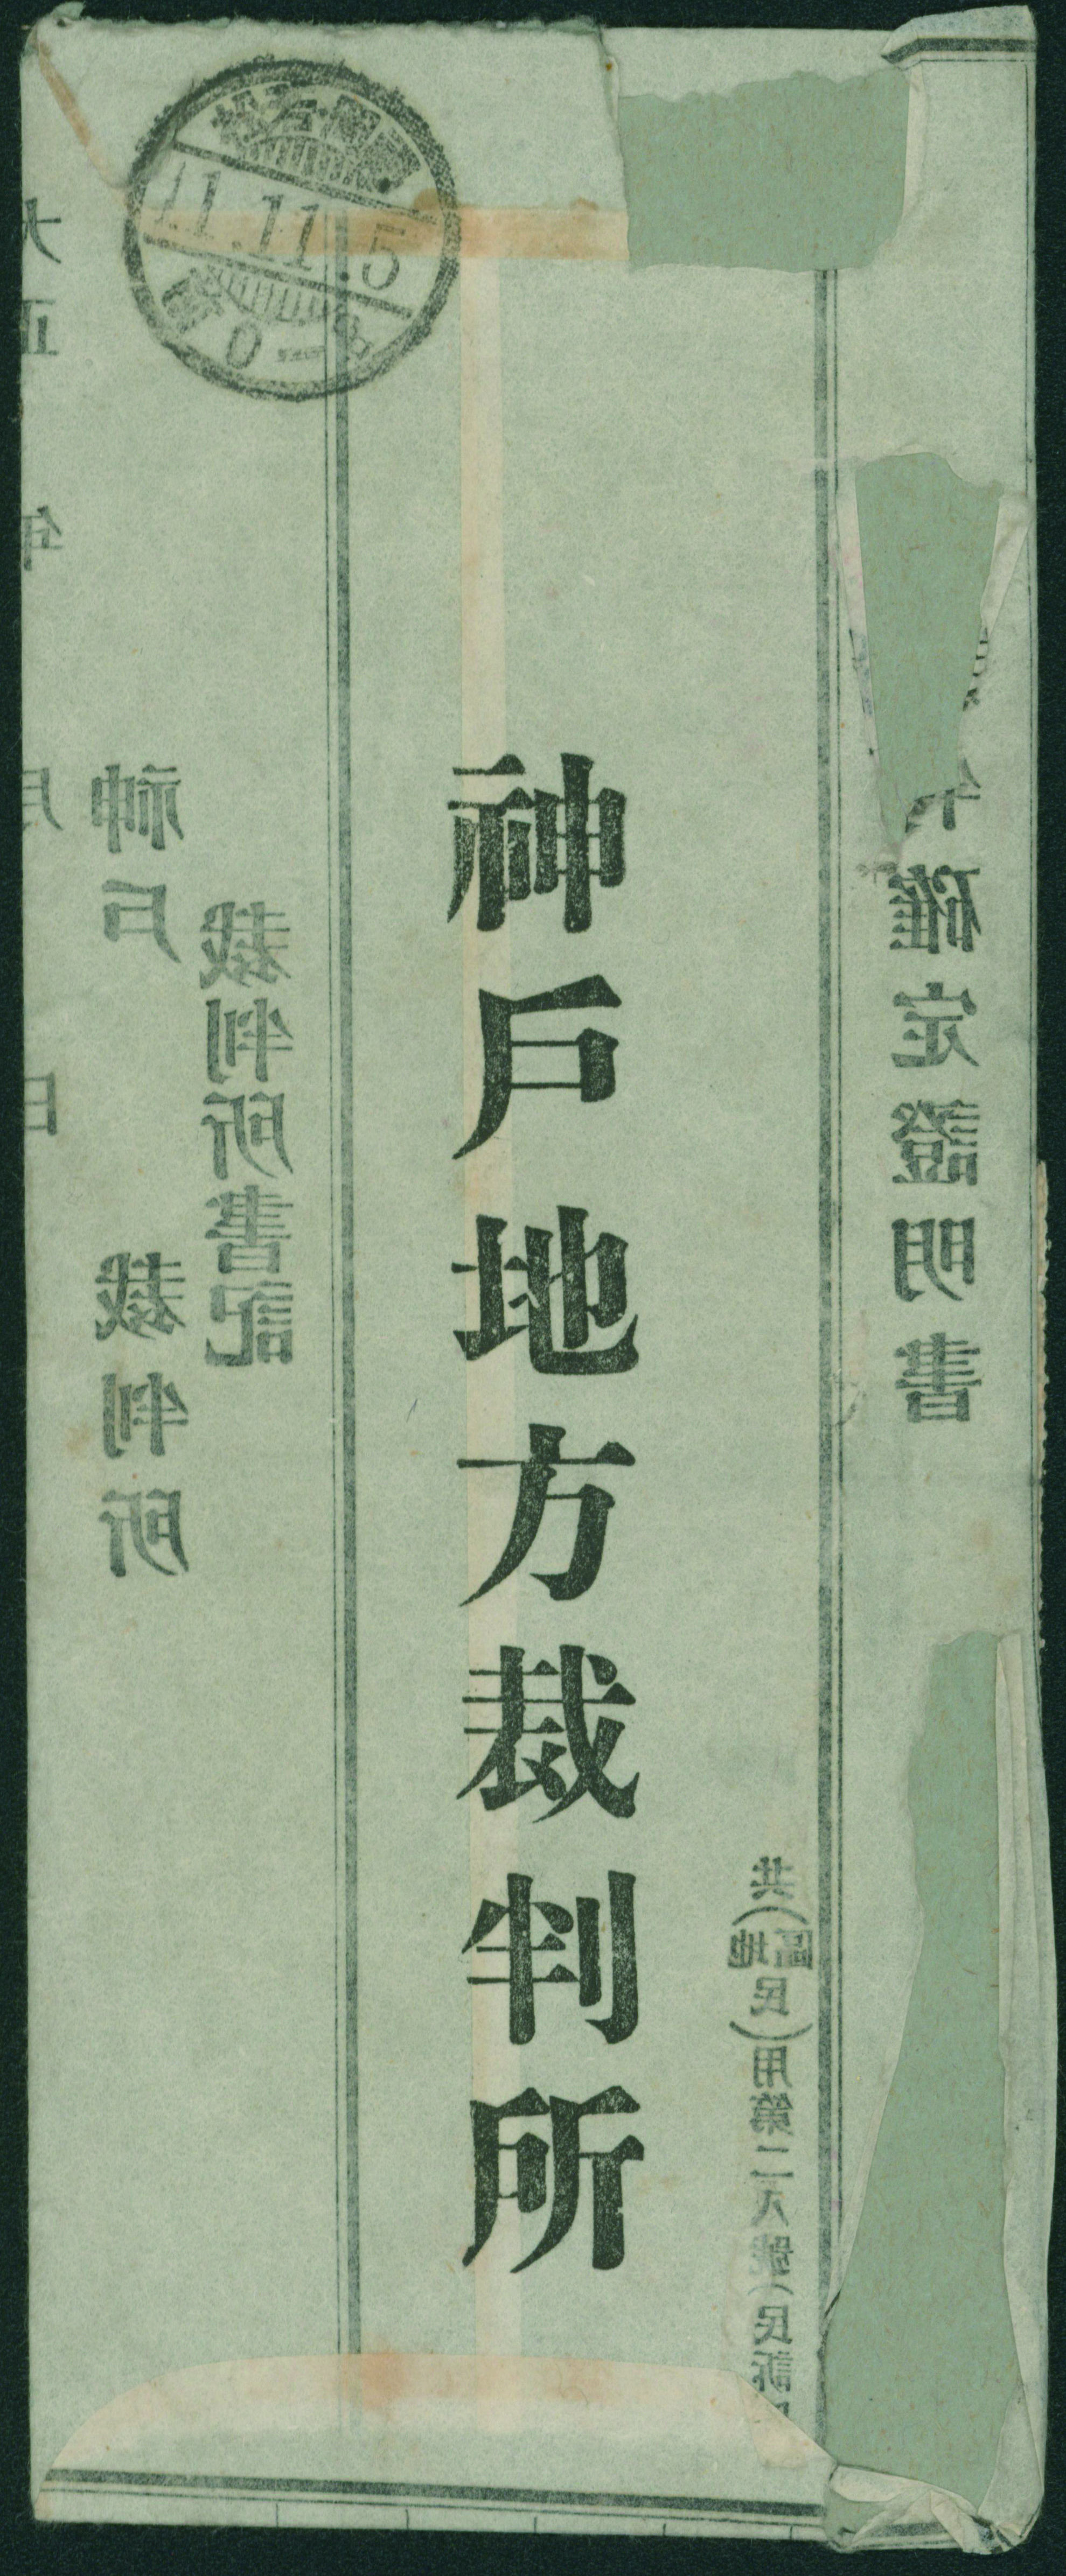 確定證明書
共(區地民)用第二八號(民訴
神戶地方裁判所
11.11.5
0-8
裁判所書記
神戶　裁判所
大正　年　月　日